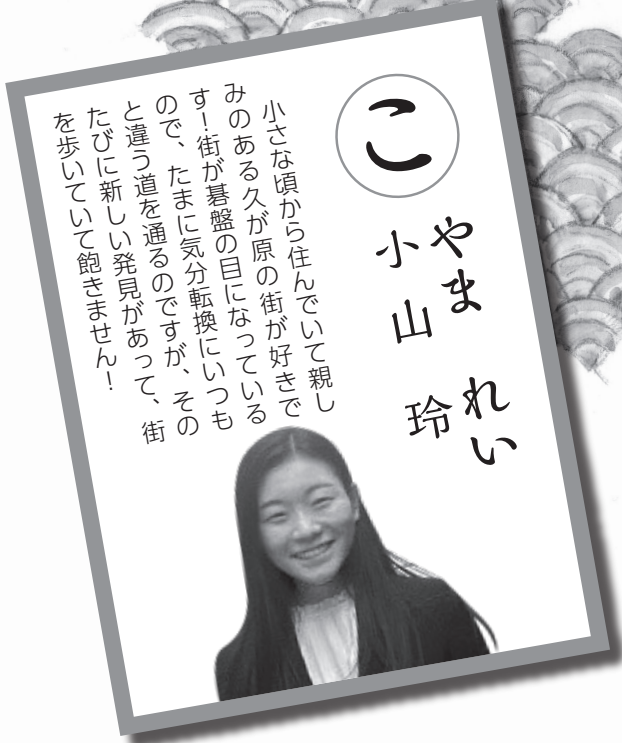 こ
やま れい
小山 玲
小さな頃から住んでいて親し
みのある久が原の街が好きで
す!街が碁盤の目になっている
ので、たまに気分転換にいつも
と違う道を通るのですが、その
たびに新しい発見があって、街
を歩いていて飽きません!